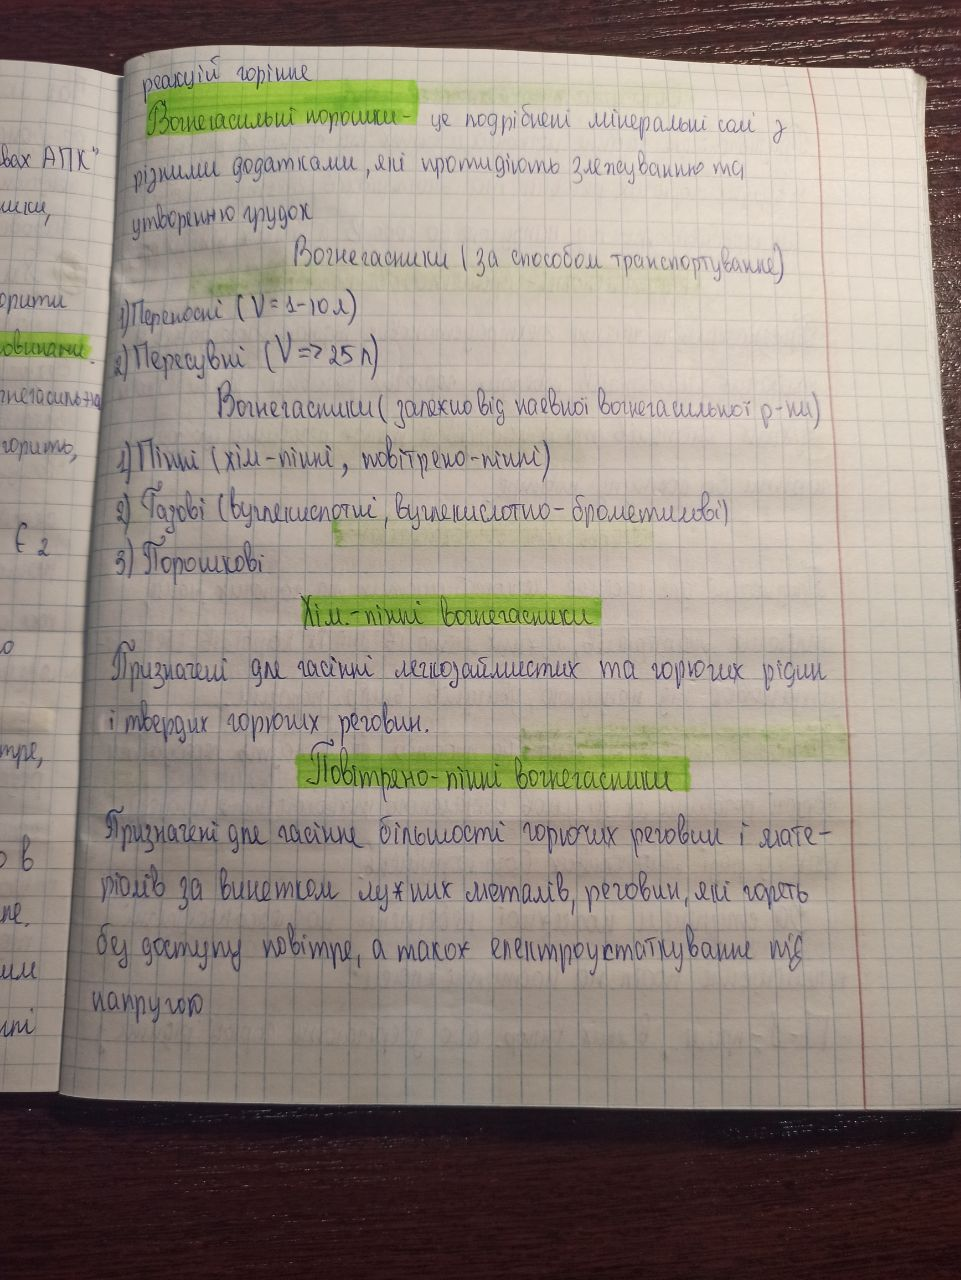 реакцій горіння
Вогнегасильні порошки - це подрібнені мінеральні солі з
різними додатками, які протидіють злежуванню та
утворенню грудок
Вогнегасники (за способом транспортування)
1) Переносні (V = 1-10 л)
2) Пересувні (V => 25 л)
Вогнегасники (залежно від наявної вогнегасильної р-ни)
1) Пінні (хім-пінні, повітряно-пінні)
2) Газові (вуглекислотні, вуглекислотно-брометилові)
3) Порошкові
Хім.-пінні вогнегасники
Призначені для гасінні легкозаймистих та горючих рідин
і твердих горючих реговин.
Повітряно-пінні вогнегасники
Призначені для гасіння більшості горючих реговин і мате-
ріалів за винятком лужних металів, реговин, які горять
без доступу повітря, а також електроустаткування під
напругою
вах АПК"
орити
овинами.
гнегасильна
горить,
Є 2
о
тря,
о в